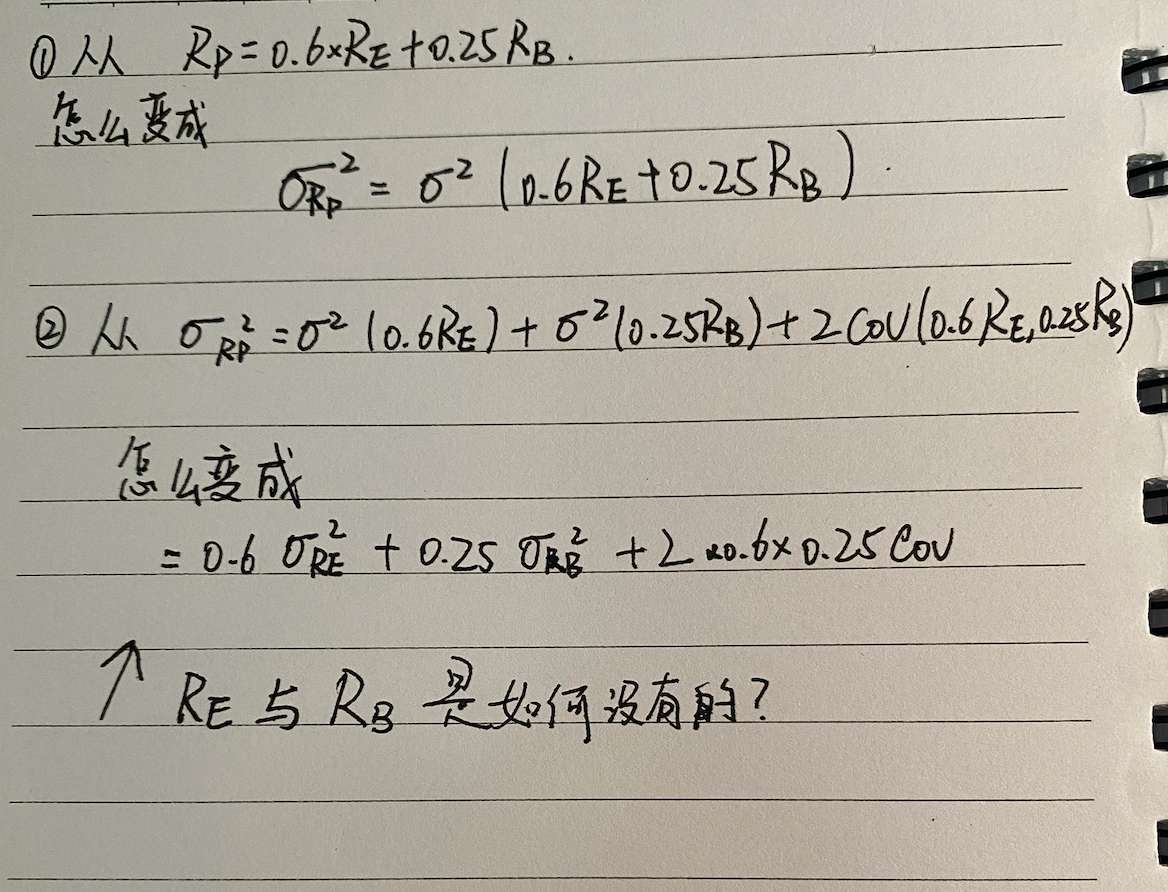 ① 从 RP = 0.6×RE + 0.25 RB.
怎么变成
σRP² = σ² (0.6RE + 0.25RB).
② 从 σRP² = σ² (0.6RE) + σ²(0.25RB) + 2 COV(0.6 RE, 0.25RB)
怎么变成
= 0.6 σRE² + 0.25 σRB² + 2 ×0.6× 0.25 COV
↑ RE 与 RB 是如何没有的?